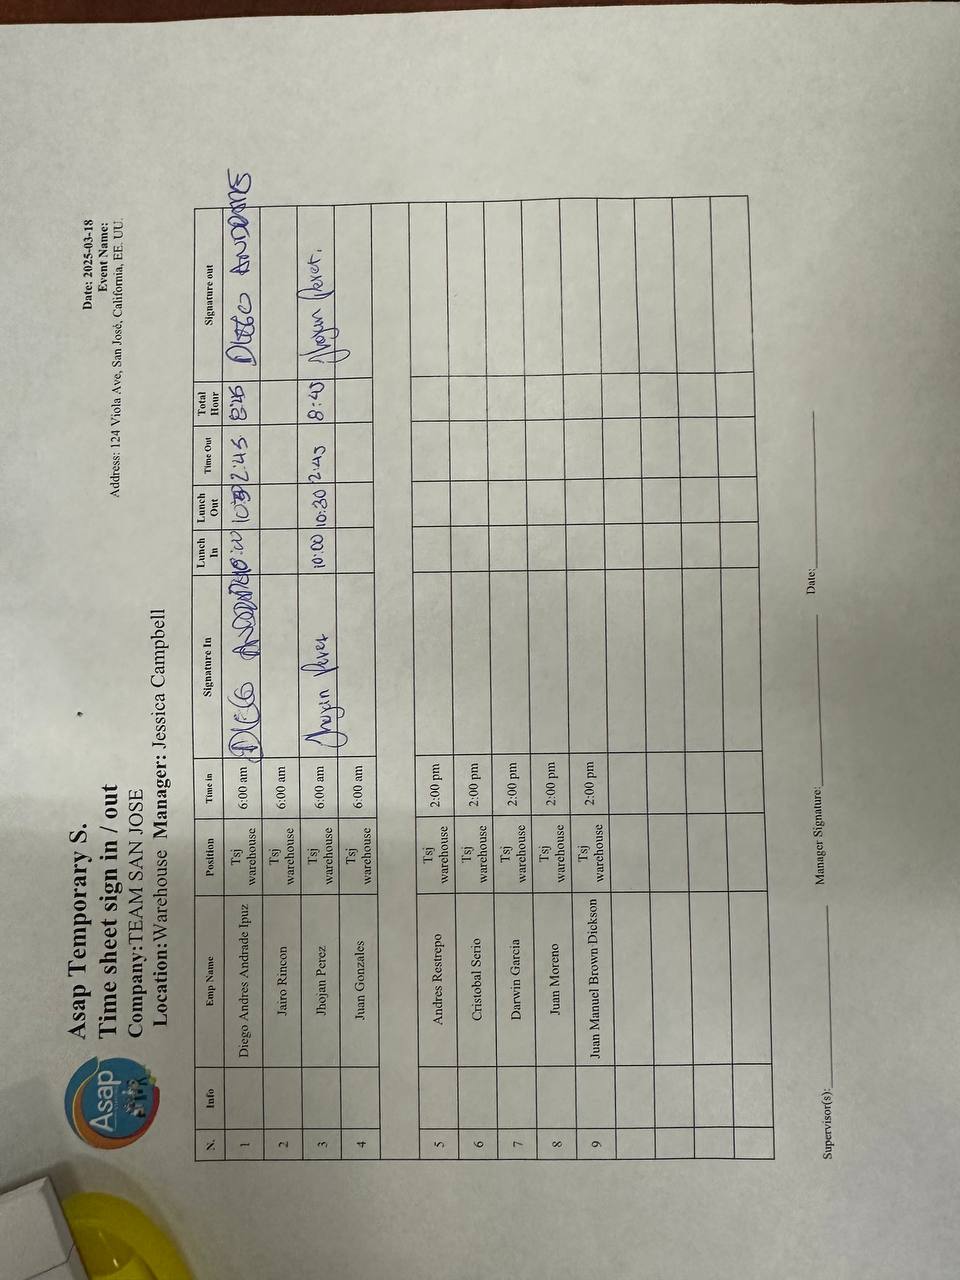 Asap
Asap Temporary S.
Time sheet sign in / out
Company:TEAM SAN JOSE
Location:Warehouse Manager: Jessica Campbell
Date: 2025-03-18
Event Name:
Address: 124 Viola Ave, San José, California, EE. UU.
N. Info Emp Name Position Time in Signature In Lunch In Lunch Out Time Out Total Hour Signature out
1 Diego Andres Andrade Ipuz Tsj warehouse 6:00 am DIEGO 2:45 DIEGO
2 Jairo Rincon Tsj warehouse 6:00 am
3 Jhojan Perez Tsj warehouse 6:00 am Jhojan Perez 10:00 10:30 2:45 8:45 Jhojan Perez.
4 Juan Gonzales Tsj warehouse 6:00 am
5 Andres Restrepo Tsj warehouse 2:00 pm
6 Cristobal Serio Tsj warehouse 2:00 pm
7 Darwin Garcia Tsj warehouse 2:00 pm
8 Juan Moreno Tsj warehouse 2:00 pm
9 Juan Manuel Brown Dickson Tsj warehouse 2:00 pm
Supervisor(s): Manager Signature: Date: